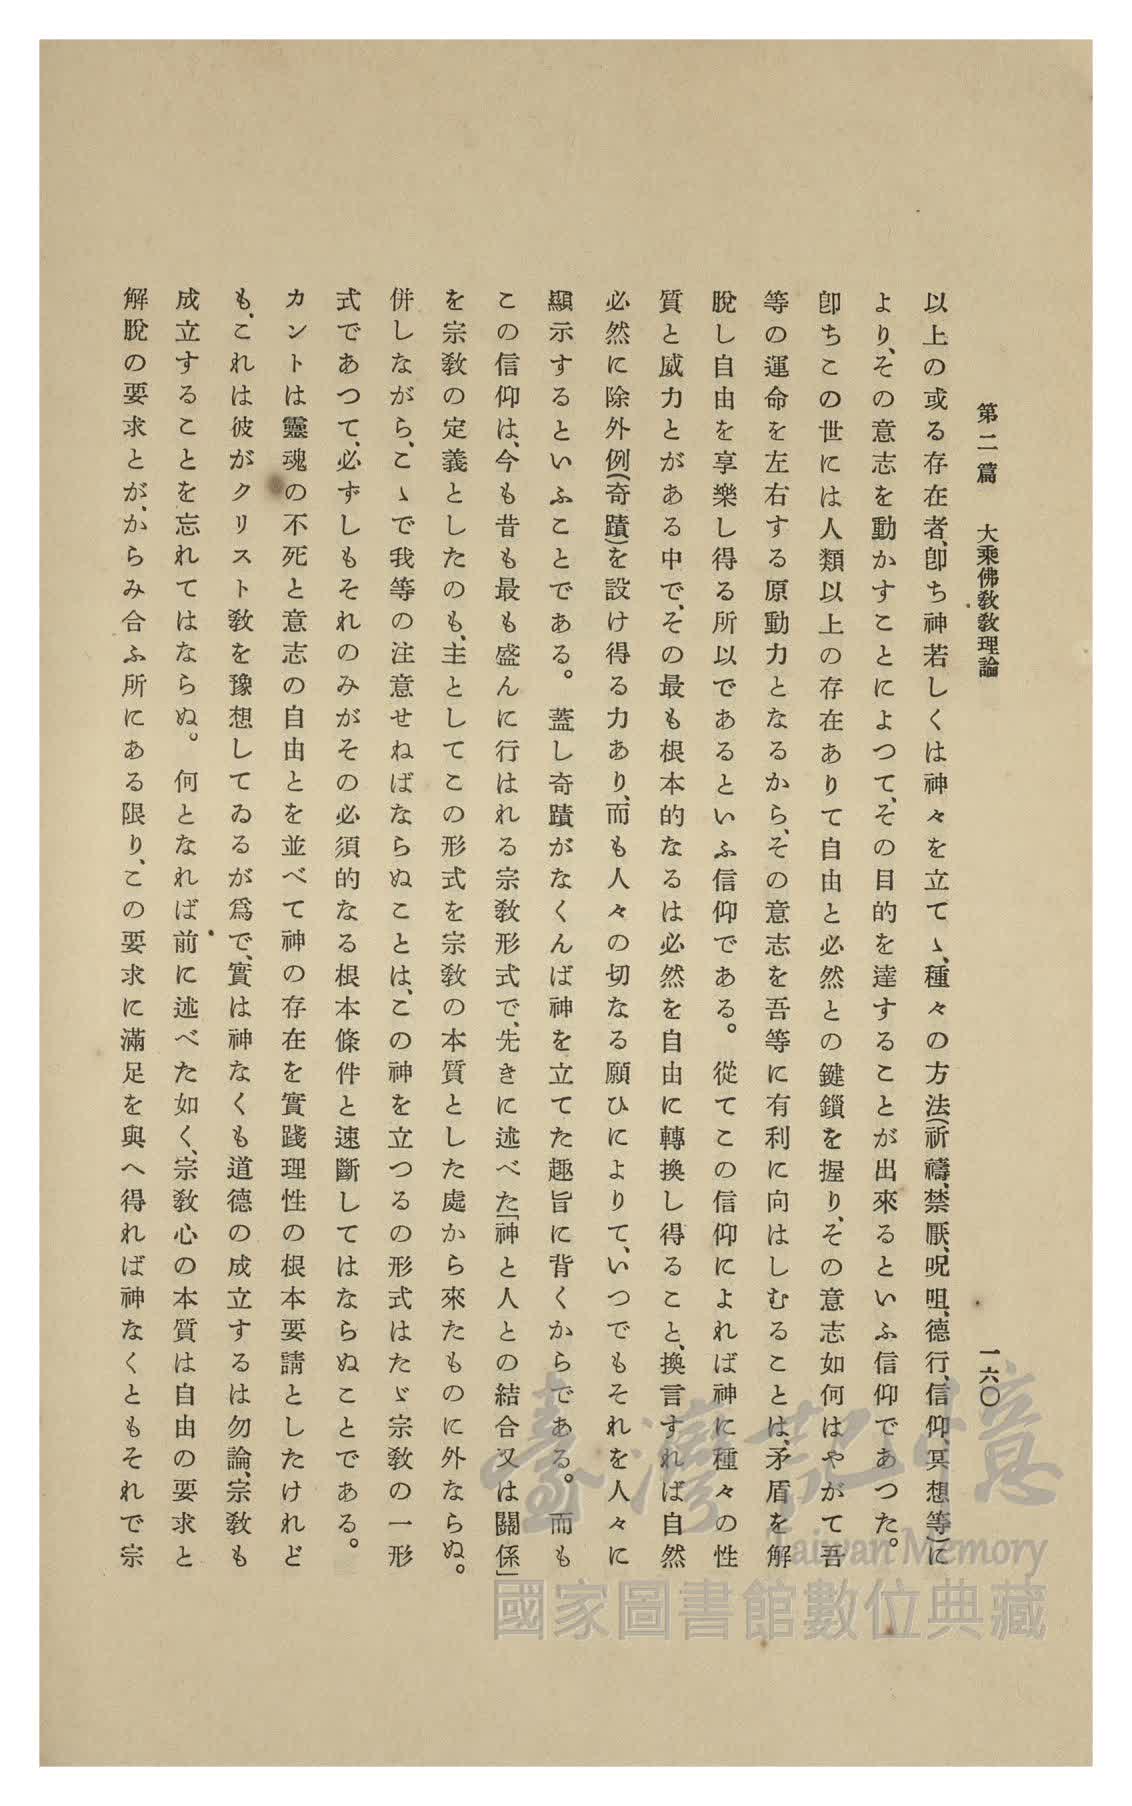 第二篇　大乘佛敎敎理論　一六〇
以上の或る存在者、卽ち神若しくは神々を立てゝ、種々の方法(祈禱、禁厭、呪咀、德行、信仰、冥想等)に
より、その意志を動かすことによつて、その目的を達することが出來るといふ信仰であつた。
卽ちこの世には人類以上の存在ありて自由と必然との鍵鎖を握り、その意志如何はやがて吾
等の運命を左右する原動力となるから、その意志を吾等に有利に向はしむることは、矛盾を解
脫し自由を享樂し得る所以であるといふ信仰である。從てこの信仰によれば神に種々の性
質と威力とがある中で、その最も根本的なるは必然を自由に轉換し得ること、換言すれば自然
必然に除外例(奇蹟)を設け得る力あり、而も人々の切なる願ひによりて、いつでもそれを人々に
顯示するといふことである。蓋し奇蹟がなくんば神を立てた趣旨に背くからである。而も
この信仰は、今も昔も最も盛んに行はれる宗敎形式で、先きに述べた「神と人との結合又は關係」
を宗敎の定義としたのも、主としてこの形式を宗敎の本質とした處から來たものに外ならぬ。
併しながら、こゝで我等の注意せねばならぬことは、この神を立つるの形式はたゞ宗敎の一形
式であつて、必ずしもそれのみがその必須的なる根本條件と速斷してはならぬことである。
カントは靈魂の不死と意志の自由とを並べて神の存在を實踐理性の根本要請としたけれど
も、これは彼がクリスト敎を豫想してゐるが爲で、實は神なくも道德の成立するは勿論、宗敎も
成立することを忘れてはならぬ。何となれば前に述べた如く、宗敎心の本質は自由の要求と
解脫の要求とが、からみ合ふ所にある限り、この要求に滿足を與へ得れば神なくともそれで宗
臺灣記憶
Taiwan Memory
國家圖書館數位典藏